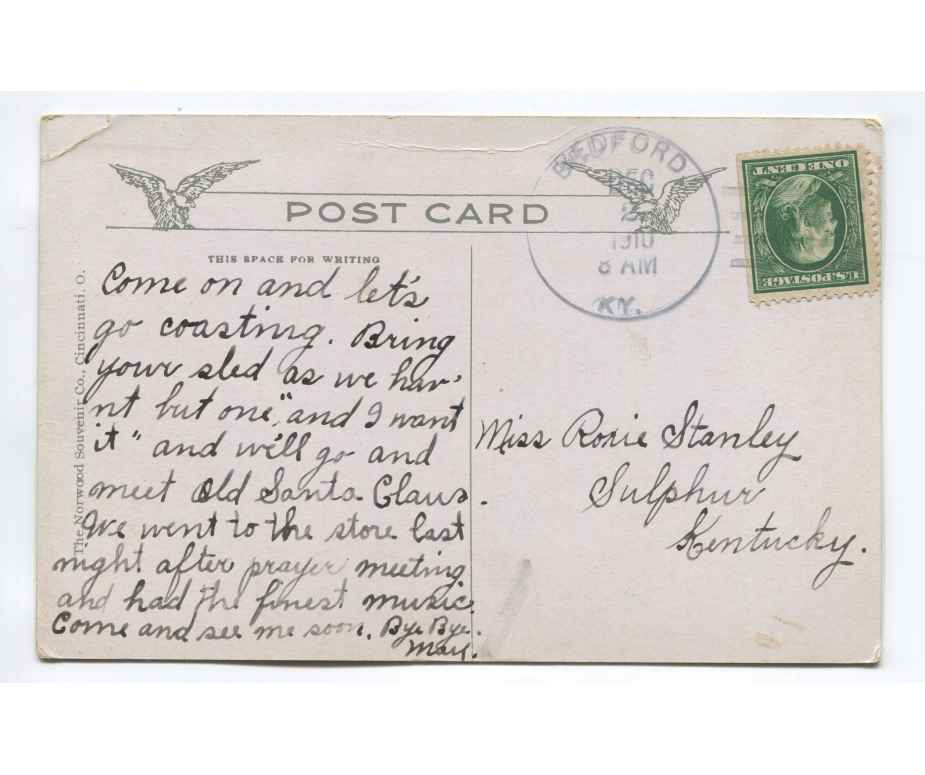 POST CARD
THIS SPACE FOR WRITING
Come on and let's
go coasting. Bring
your sled as we hav'
nt but one, "and I want
it" and we'll go and
meet Old Santa Claus.
We went to the store last
night after prayer meeting
and had the finest music.
Come and see me soon. Bye Bye.
May.
The Norwood Souvenir Co., Cincinnati, O.
BEDFORD
DEC
2
1910
8 AM
KY.
U.S. POSTAGE
ONE CENT
Miss Roxie Stanley
Sulphur
Kentucky.